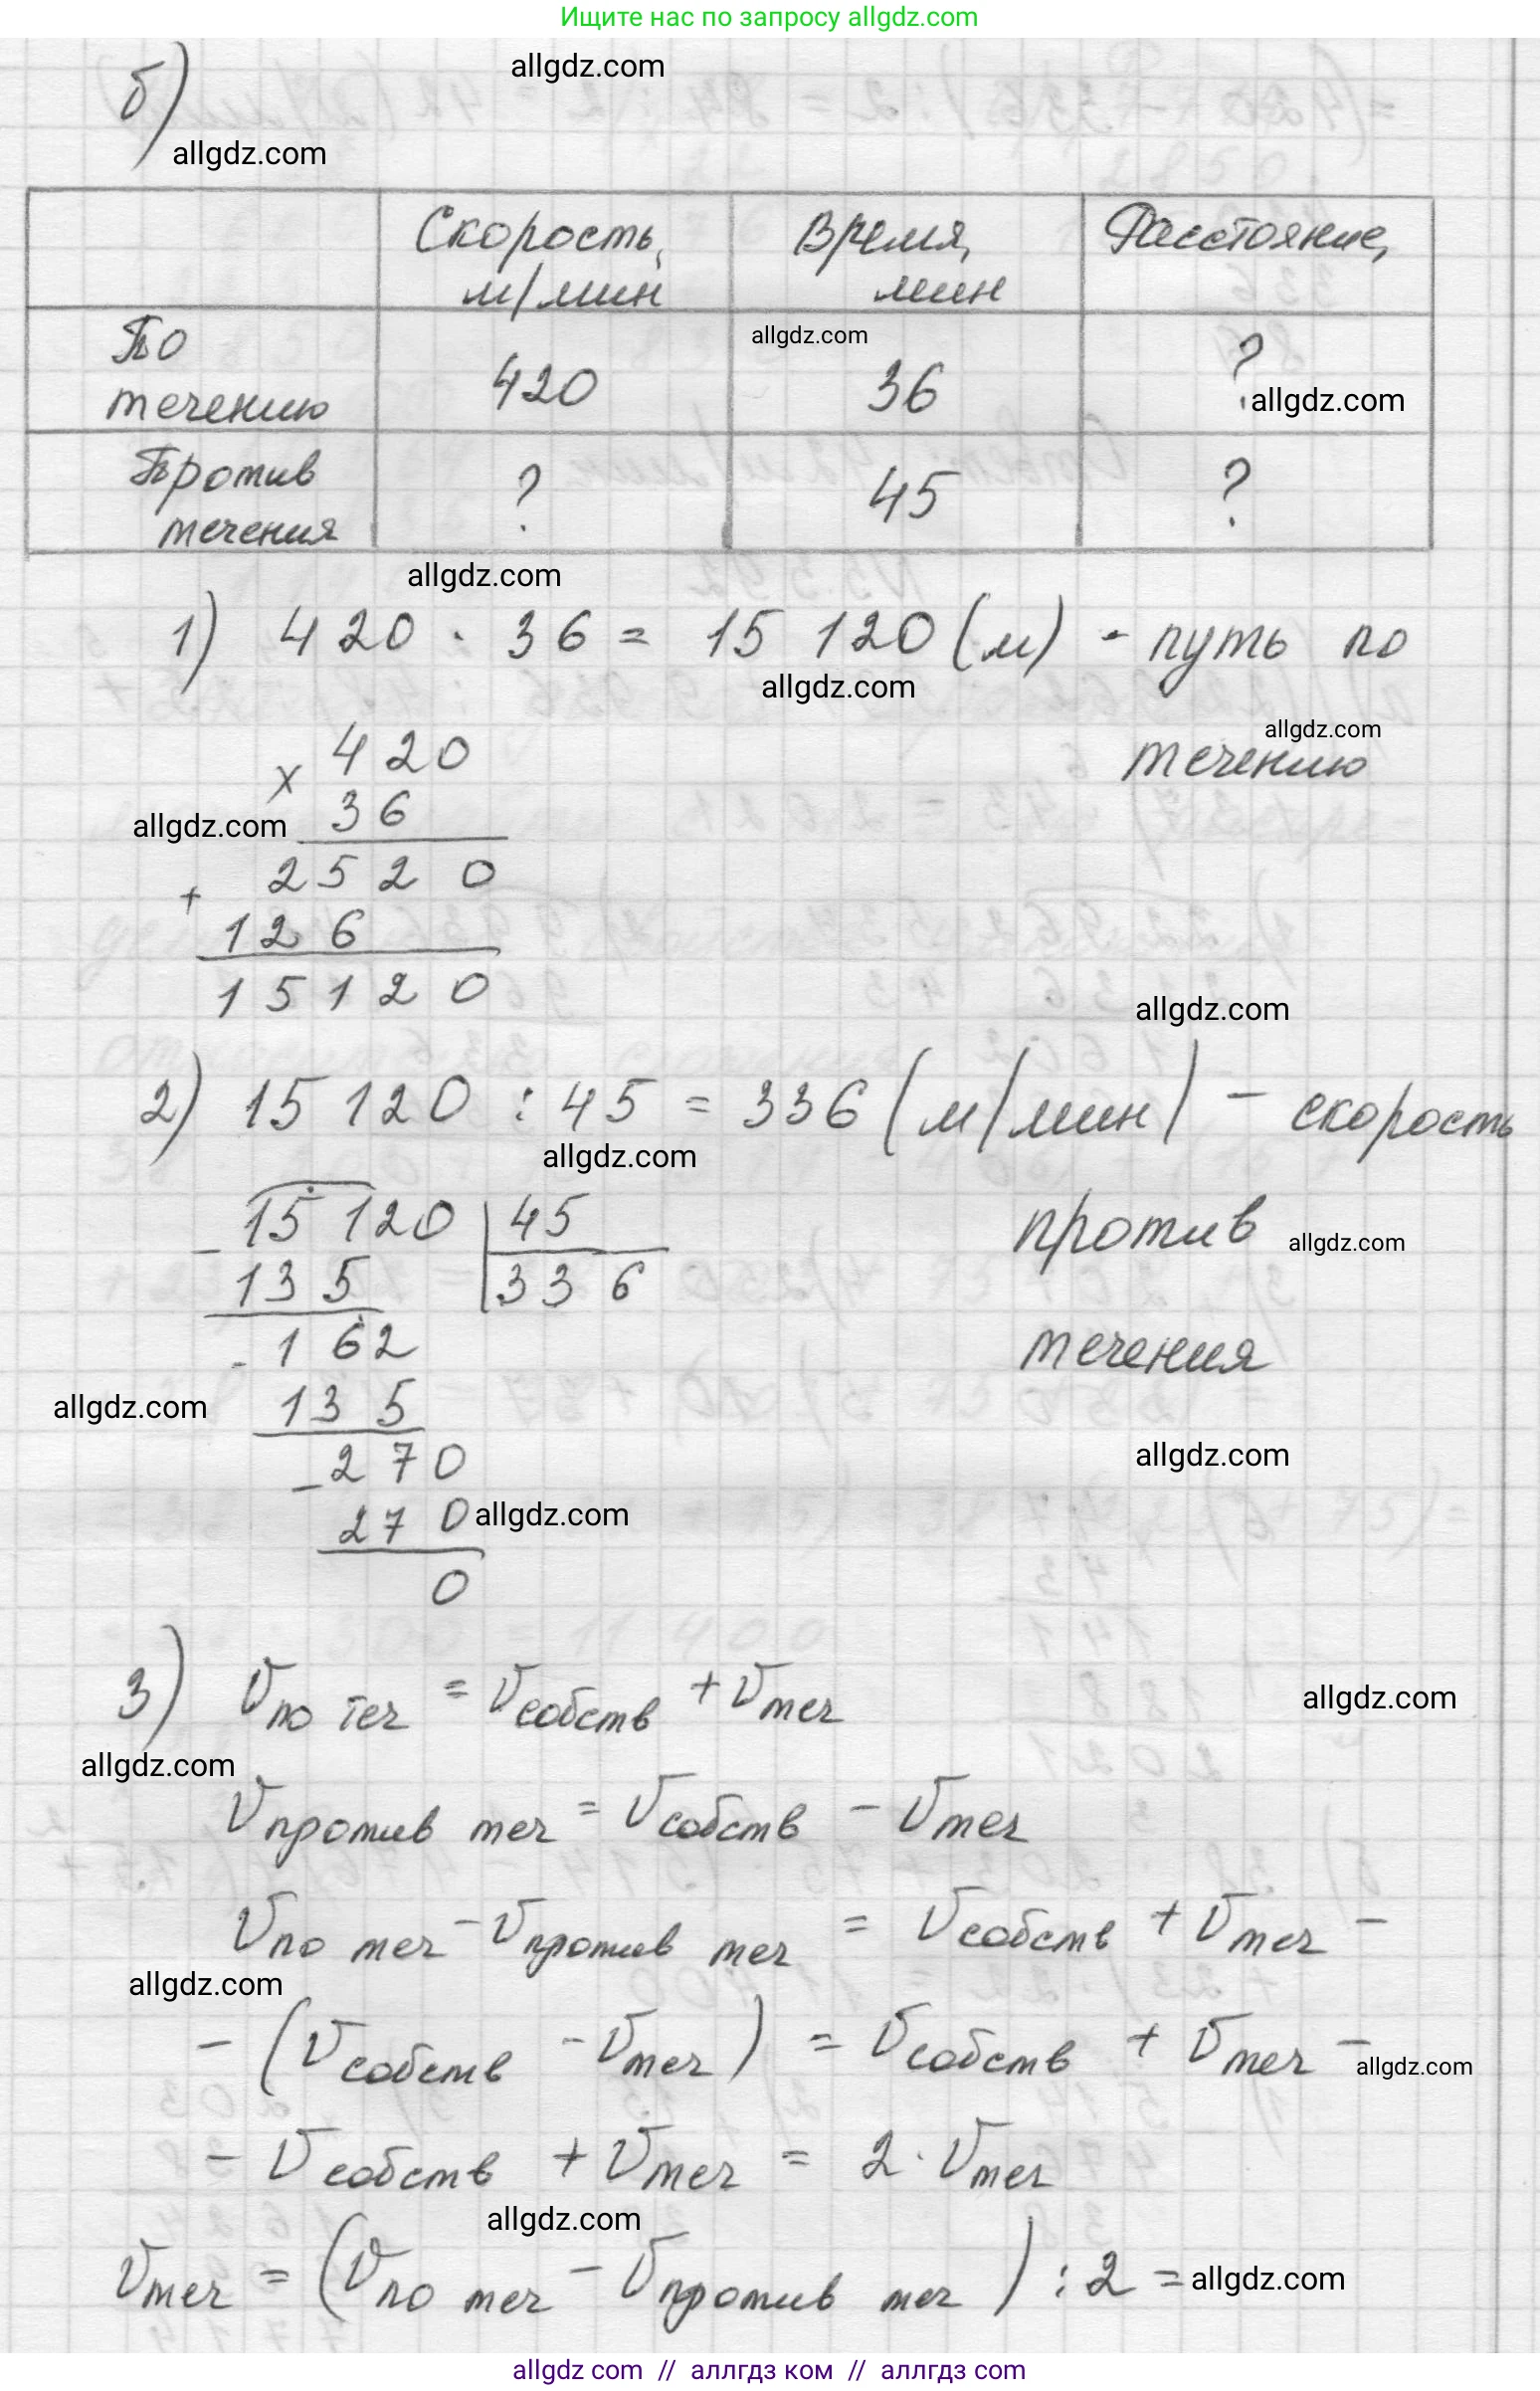 Ищите нас по запросу allgdz.com
allgdz.com
б)
allgdz.com
Скорость, м/мин
Время, мин
Расстояние,
По течению
420
allgdz.com
36
?
allgdz.com
Против течения
?
45
?
allgdz.com
1) 420 · 36 = 15 120 (м) - путь по
allgdz.com
allgdz.com
течению
× 420
allgdz.com
36
2520
+
126
15120
allgdz.com
2) 15 120 : 45 = 336 (м/мин) - скорость
allgdz.com
- 15 120 45
против
allgdz.com
135 336
- 162
течения
allgdz.com
135
allgdz.com
- 270
270
allgdz.com
0
3) v по теч = v собств + v теч
allgdz.com
allgdz.com
v против теч = v собств - v теч
v по теч - v против теч = v собств + v теч -
allgdz.com
- (v собств - v теч) = v собств + v теч -
allgdz.com
- v собств + v теч = 2 · v теч
allgdz.com
v теч = (v по теч - v против теч) : 2 =
allgdz.com
allgdz com // аллгдз ком // аллгдз com